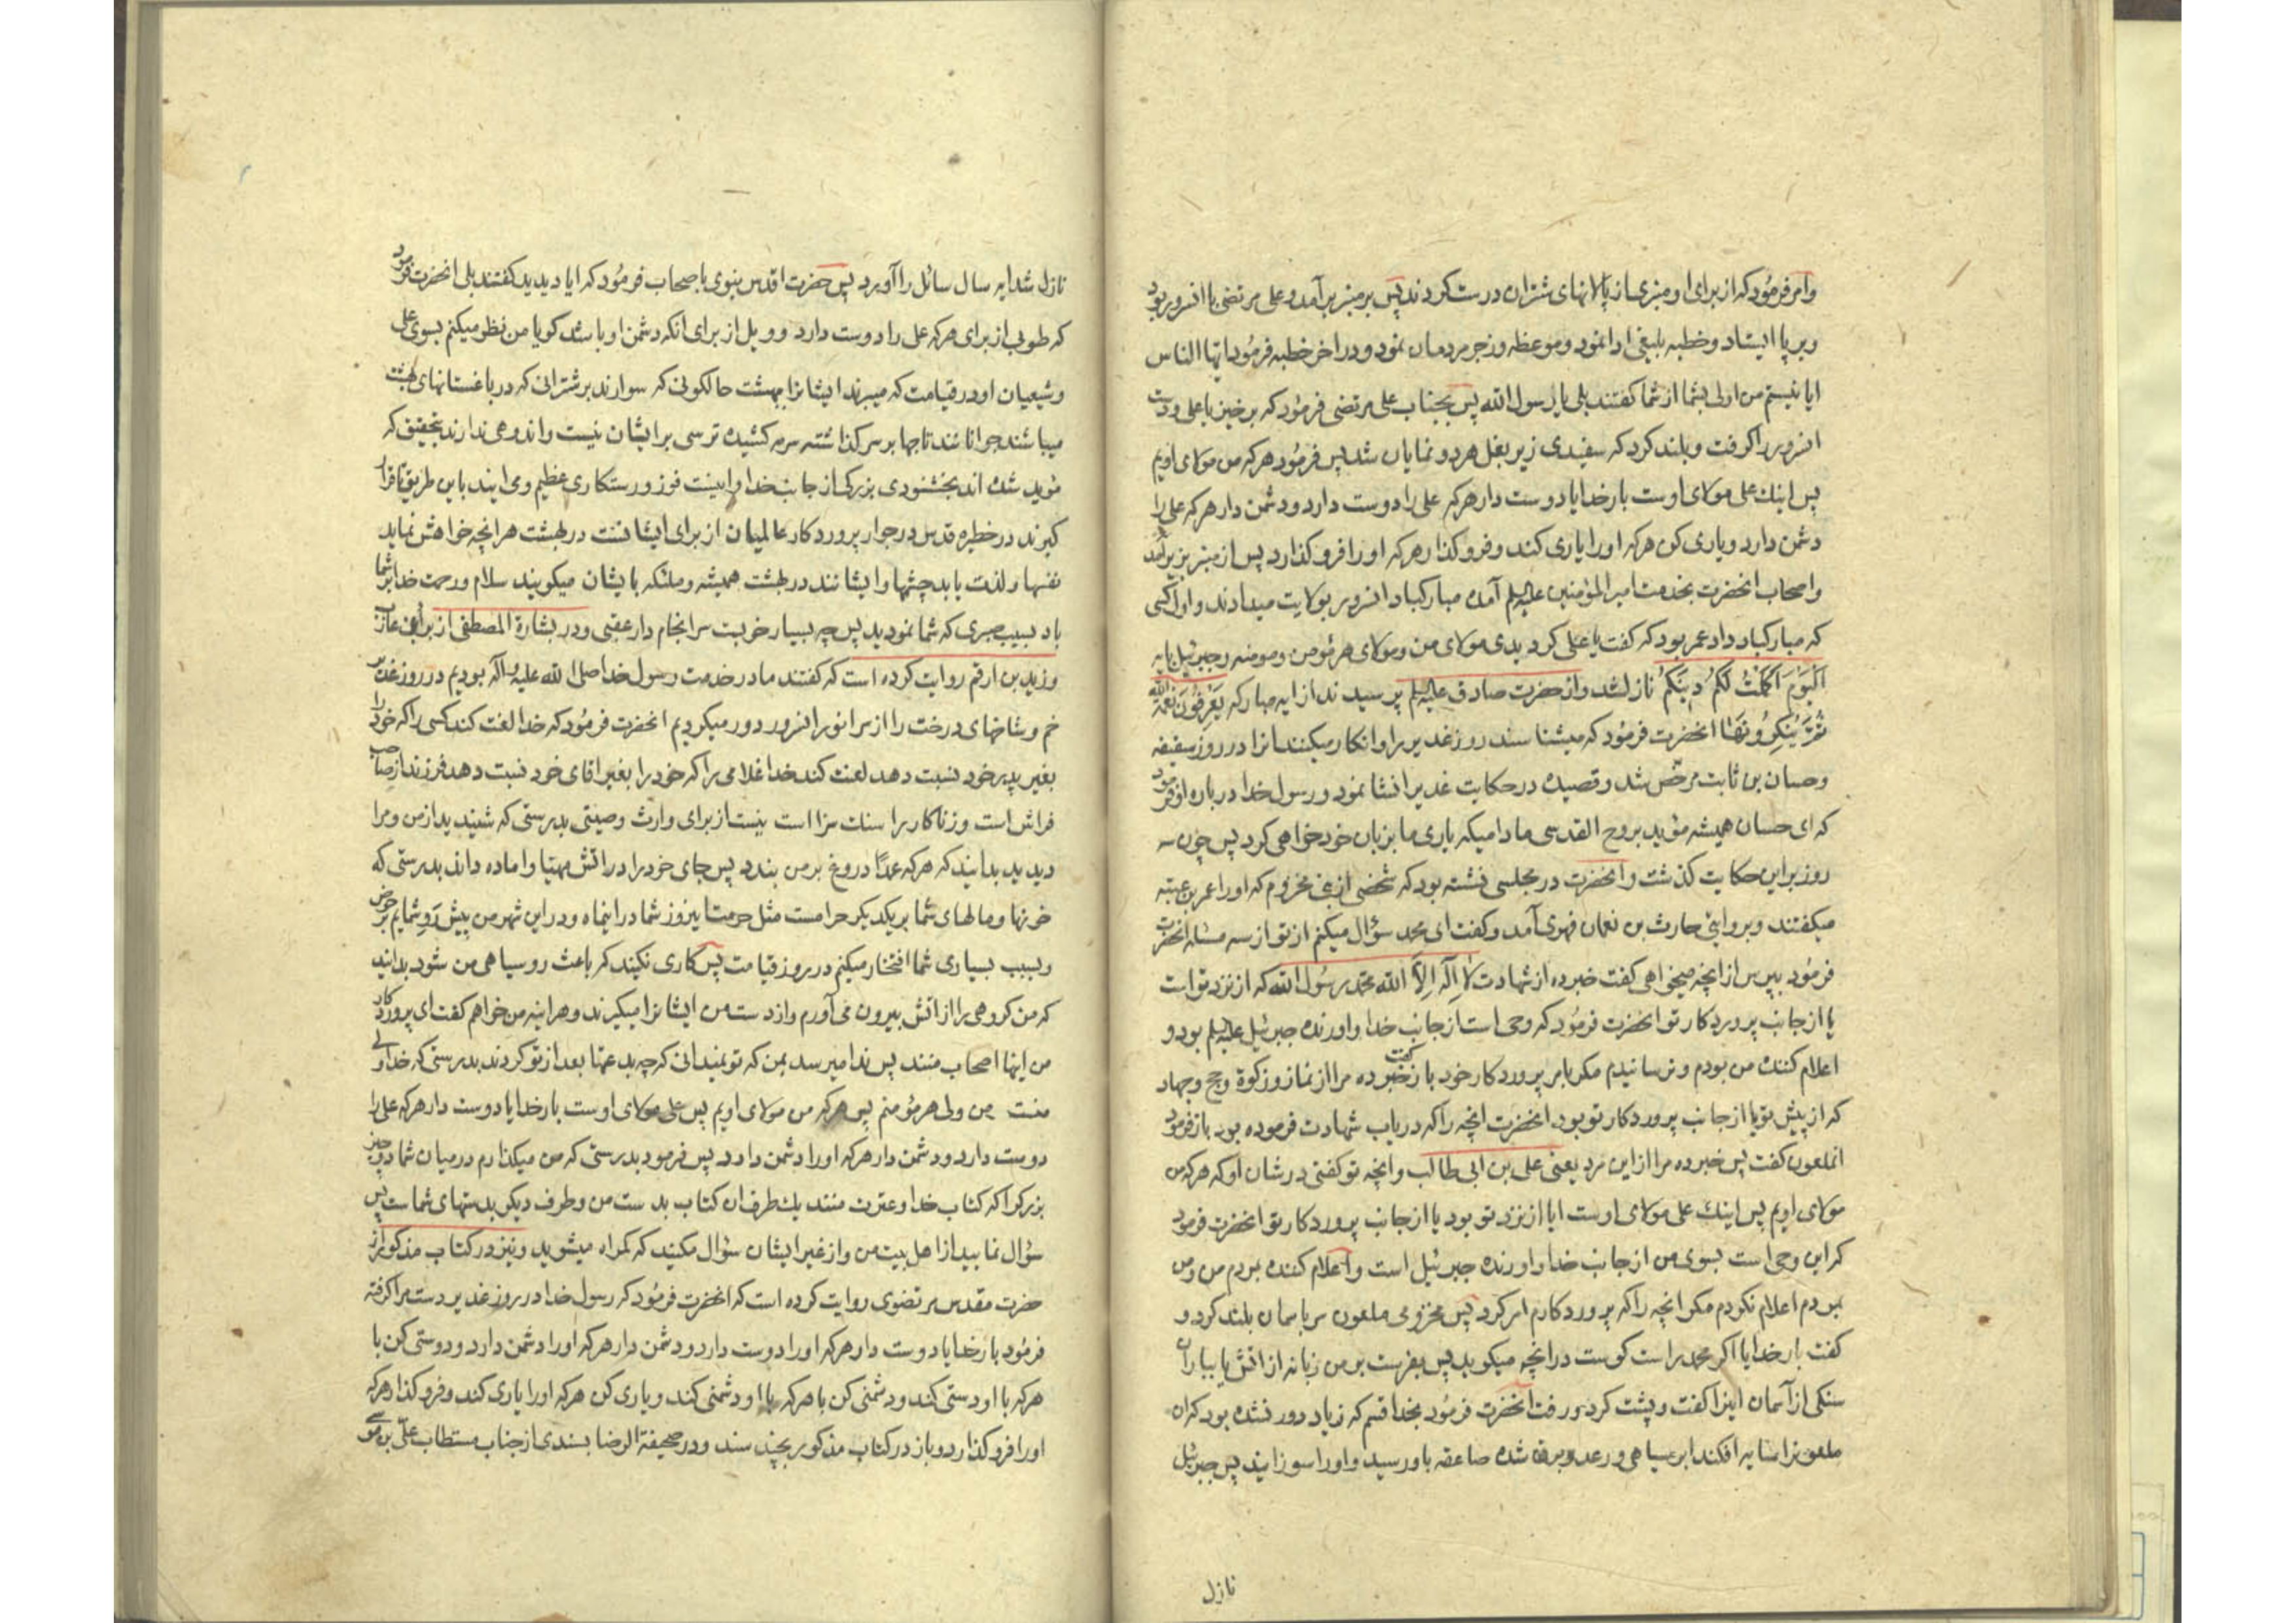 وامر فرمُود که از برای او منبری از پالانهای شتران درست کردند پس بر منبر بر آمد و علی مرتضی با انسرور بود
وبر پا ایستاد و خطبه بلیغی ادا نمود و موعظه و زجر مردمان نمود و در اخر خطبه فرمُود ایّها الناس
ایا نیستم من اولی بشما از شما کفتند بلی یا رسول الله پس بجناب علی مرتضی فرمُود که برخیز یا علی و دست
انسرور را کرفت و بلند کرد که سفیدی زیر بغل هر دو نمایان شد پس فرمُود هر که من مولای اویم
پس اینك علی مولای اوست بار خدایا دوست دار هر که علی را دوست دارد و دشمن دار هر که علی را
دشمن دارد و یاری کن هر که او را یاری کند و فرو کذار هر که او را فرو کذارد پس از منبر بزیر آمد
واصحاب انحضرت بخدمت امیر المؤمنین علیه السلم آمده مبارکباد انسرور بولایت میدادند و اول کسی
که مبارکباد داد عمر بود که کفت یا علی کردیدی مولای من و مولای هر مُؤمن و مومنه و جبرئیل بایه
اَلْیَوْمَ اَکْمَلْتُ لَکُمْ دینَکُمْ نازل شد و از حضرت صادق علیه السلم پرسیدند از ایه مبارکه یَعْرِفُونَ نِعْمَةَ الله
ثُمَّ یُنْکِرُونَهٰا انحضرت فرمُود که میشناسند روز غدیر را و انکار میکنند انرا در روز سقیفه
وحسان بن ثابت مرخّص شد و قصیده در حکایت غدیر انشا نمود و رسول خدا در باره او فرمود
که ای حسان همیشه مؤید بروح القدسی مادامیکه یاری ما بزبان خود خواهی کرد پس چون سه
روز بر این حکایت کذشت و انحضرت در مجلسی نشسته بود که شخصی از بنی مخزوم که او را عمر بن عتبه
میکفتند و بروایتی حارث بن نعمان فهری آمد و کفت ای محمد سؤال میکنم از تو از سه مسئله انحضرت
فرمُود بپرس از انچه میخواهی کفت خبر ده از شهادت لٰا اِلٰهَ اِلاَّ الله محمّد رسُول الله که از نزد تو است
یا از جانب پروردکار تو انحضرت فرمُود که وحی است از جانب خدا و اورنده جبرئیل علیه السلم بود و
اعلام کننده من بودم و نرسانیدم مکر بامر پروردکار خود باز کفت خبر ده مرا از نماز و زکوة و حج و جهاد
که از پیش تو یا از جانب پروردکار تو بود انحضرت انچه را که در باب شهادت فرموده بود باز فرمود
انملعون کفت پس خبر ده مرا از این مرد یعنی علی بن ابی طالب و انچه تو کفتی در شان او که هر که من
مولای اویم پس اینك علی مولای اوست ایا از نزد تو بود یا از جانب پروردکار تو انحضرت فرمود
که این وحی است بسوی من از جانب خدا و اورنده جبرئیل است و اعلام کننده بمردم من و من
بمردم اعلام نکردم مکر انچه را که پروردکارم امر کرد پس مخزومی ملعون سر باسمان بلند کرد و
کفت بار خدایا اکر محمد راست کوست در انچه میکوید پس بفرست بر من زبانه از اتش یا بباران
سنکی از آسمان اینرا کفت و پشت کرد و رفت انحضرت فرمُود بخدا قسم که زیاد دور نشده بود که ان
ملعونرا سایه افکند ابر سیاهی و رعد و برق شده صاعقه باو رسید و او را سوزانید پس جبرئیل
نازل
نازل شد ایه سال سائل را آورد پس حضرت اقدس نبوی باصحاب فرمُود که ایا دیدید کفتند بلی انحضرت فرمود
که طوبی از برای هر که علی را دوست دارد و ویل از برای انکه دشمن او باشد کویا من نظر میکنم بسوی علی
وشیعیان او در قیامت که میبرند ایشانرا ببهشت حالکونی که سوارند بر شترانی که در باغستانهای بهشت
میباشند جوانانند تاجها بر سر کذاشته سرمه کشیده ترسی بر ایشان نیست و اندوهی ندارند بتحقیق که
مؤید شده اند بخشنودی بزرك از جانب خدا و اینست فوز و رستکاری عظیم و می ایند باین طریق تا قرار
کیرند در خطیره قدس در جوار پروردکار عالمیان از برای ایشانست در بهشت هر انچه خواهش نماید
نفسها و لذت یابد چشمها و ایشانند در بهشت همیشه و ملئکه بایشان میکویند سلام و رحمت خدا بر شما
باد بسبب صبری که شما نمودید پس چه بسیار خوبست سر انجام دار عقبی و در بشارة المصطفی از براء بن عازب
وزید بن ارقم روایت کرده است که کفتند ما در خدمت رسول خدا صلی الله علیه واله بودیم در روز غدیر
خم و شاخهای درخت را از سر انور انسرور دور میکردیم انحضرت فرمُود که خدا لعنت کند کسی را که خود را
بغیر پدر خود نسبت دهد لعنت کند خدا غلامی را که خود را بغیر اقای خود نسبت دهد فرزند از صاحب
فراش است و زناکار را سنك سزا است نیست از برای وارث وصیتی بدرستی که شنیدید از من و مرا
دیدید بدانید که هر که عمدًا دروغ بر من بندد پس جای خود را در اتش مهیا و اماده داند بدرستی که
خونها و مالهای شما بر یکدیکر حرامست مثل حرمت اینروز شما در اینماه و در این شهر من پیش رَوِ شمایم بر حوض
وبسبب بسیاری شما افتخار میکنم در روز قیامت پس کاری نکنید که باعث رو سیاهی من شود بدانید
که من کروهی را از اتش بیرون می آورم و از دست من ایشانرا میکیرند و هر اینه من خواهم کفت ای پروردکار
من اینها اصحاب منند پس ندا میرسد بمن که تو نمیدانی که چه بدعتها بعد از تو کردند بدرستی که خدا ولی
منست من ولی هر مؤمنم پس هر که من مولای اویم پس علی مولای اوست بار خدایا دوست دار هر که علی را
دوست دارد و دشمن دار هر که او را دشمن دارد پس فرمود بدرستی که من میکذارم در میان شما دو چیز
بزرکوار که کتاب خدا و عترت منند یك طرف ان کتاب بدست من و طرف دیکر بدستهای شماست پس
سؤال نمایید از اهل بیت من و از غیر ایشان سؤال مکنید که کمراه میشوید و نیز در کتاب مذکور از
حضرت مقدس مرتضوی روایت کرده است که انحضرت فرمُود که رسول خدا در روز غدیر دست مرا کرفته
فرمُود بار خدایا دوست دار هر که او را دوست دارد و دشمن دار هر که او را دشمن دارد و دوستی کن با
هر که با او دوستی کند و دشمنی کن با هر که با او دشمنی کند و یاری کن هر که او را یاری کند و فرو کذار هر که
او را فرو کذارد و باز در کتاب مذکور بچند سند و در صحیفة الرضا بسندی از جناب مستطاب علیّ بن موسی